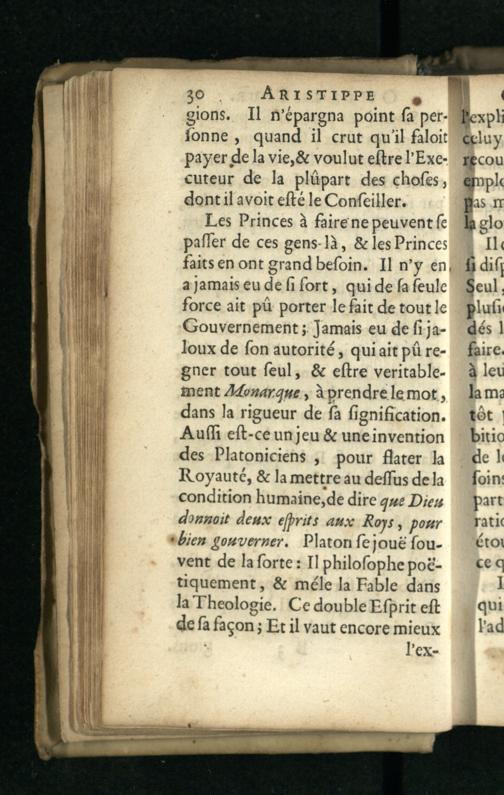 30 ARISTIPPE
gions. Il n'épargna point ſa per-
ſonne, quand il crut qu'il faloit
payer de la vie, & voulut eſtre l'Exe-
cuteur de la plûpart des choſes,
dont il avoit eſté le Conſeiller.
Les Princes à faire ne peuvent ſe
paſſer de ces gens-là, & les Princes
faits en ont grand beſoin. Il n'y en
a jamais eu de ſi fort, qui de ſa ſeule
force ait pû porter le fait de tout le
Gouvernement; Jamais eu de ſi ja-
loux de ſon autorité, qui ait pû re-
gner tout ſeul, & eſtre veritable-
ment Monarque, à prendre le mot,
dans la rigueur de ſa ſignification.
Auſſi eſt-ce un jeu & une invention
des Platoniciens, pour flater la
Royauté, & la mettre au deſſus de la
condition humaine, de dire que Dieu
donnoit deux eſprits aux Roys, pour
bien gouverner. Platon ſe jouë ſou-
vent de la ſorte: Il philoſophe poë-
tiquement, & méle la Fable dans
la Theologie. Ce double Eſprit eſt
de ſa façon; Et il vaut encore mieux
l'ex-
l'expli
celuy
recou
emplo
pas m
la glo
Il
ſi diſp
Seul,
pluſie
dés l
faire.
à leu
la ma
tôt
bitio
de l
ſoins
part
ratio
étou
ce q
qui
l'ad